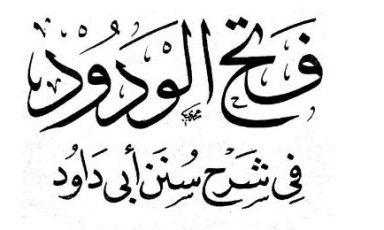 فَتْحُ الْوَدُودِ
فِي شَرْحِ سُنَنِ أَبِي دَاوُد